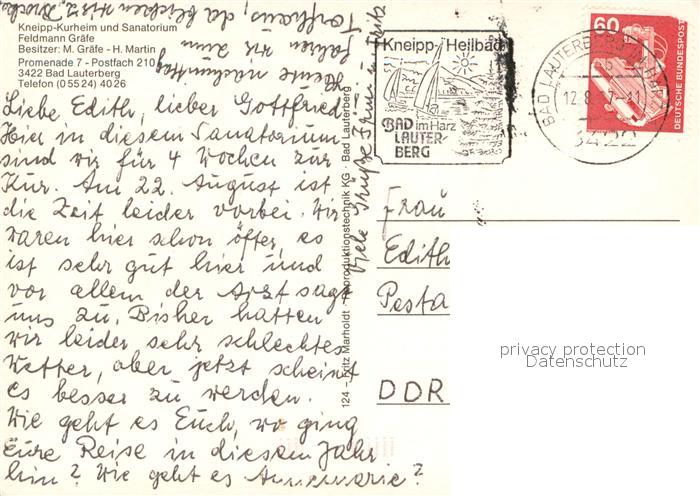 Kneipp-Kurheim und Sanatorium
Feldmann Gräfe
Besitzer: M. Gräfe - H. Martin
Promenade 7 - Postfach 210
3422 Bad Lauterberg
Telefon (0 55 24) 40 26
Liebe Edith, lieber Gottfried!
Hier in diesem Sanatorium
sind wir für 4 Wochen zur
Kur. Am 22. August ist
die Zeit leider vorbei. Wir
waren hier schon öfter, es
ist sehr gut hier und
vor allem der Arzt sagt
uns zu. Bisher hatten
wir leider sehr schlechtes
Wetter, aber jetzt scheint
es besser zu werden.
Wie geht es Euch, wo ging
Eure Reise in diesem Jahr
hin? Wie geht es Annemarie?
Heute nachmittag
fahren wir zum
Torfhaus, da
Viele Grüße
124 - Fritz Marholdt - Reproduktionstechnik KG · Bad Lauterberg
Kneipp-Heilbad
BAD im Harz
LAUTER-
BERG
BAD LAUTERBERG
12.8.
3422
60
DEUTSCHE BUNDESPOST
Frau
Edith
Pesta
DDR
privacy protection
Datenschutz